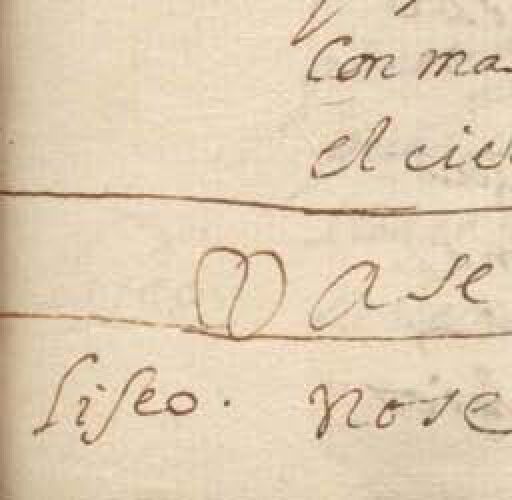 Con ma
el ciel
Vase
Liseo. no se